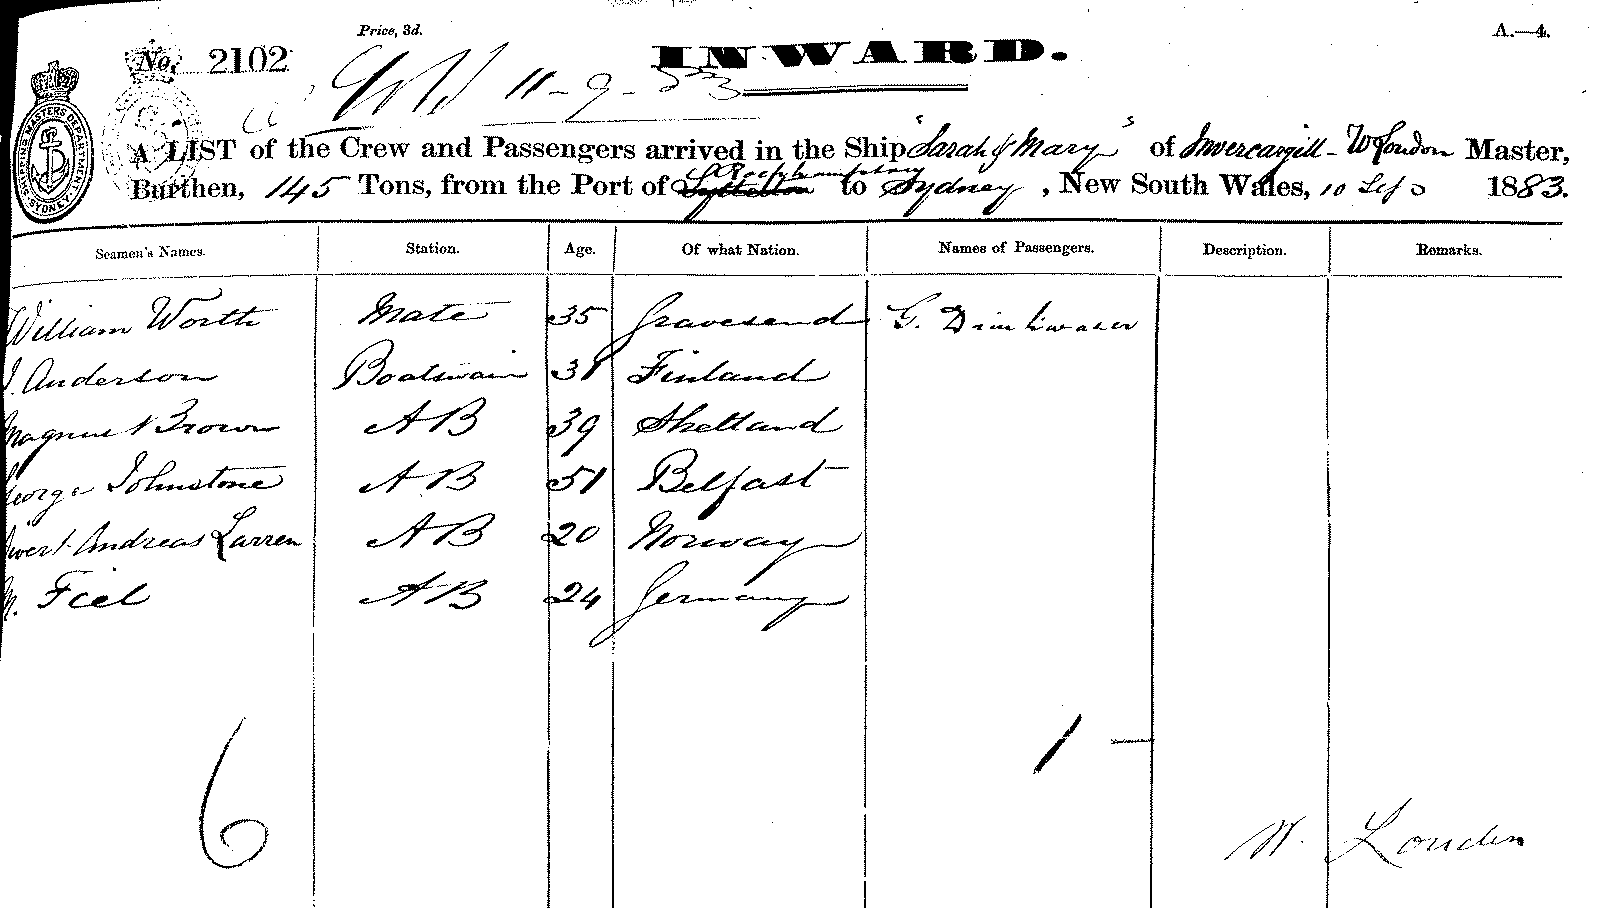 Price, 3d.
A.—4.
No. 2102
INWARD.
11-9-83
A LIST of the Crew and Passengers arrived in the Ship "Sarah & Mary" of Invercargill - W London Master,
Burthen, 145 Tons, from the Port of to Sydney, New South Wales, 10 Sep 1883.
SHIPPING MASTERS DEPARTMENT SYDNEY
Seamen's Names. Station. Age. Of what Nation. Names of Passengers. Description. Remarks.
William Worth Mate 35 Gravesend G. Drinkwater
J. Anderson Boatswain 31 Finland
Magnus Brown AB 39 Shetland
George Johnstone AB 51 Belfast
Andreas Larsen AB 20 Norway
M. Fiel AB 24 Germany
6 1 —
W. Louden